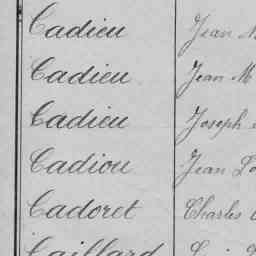 Cadieu Jean M
Cadieu Jean M
Cadieu Joseph
Cadiou Jean Lo
Cadoret Charles
Caillard